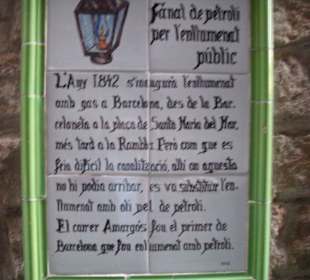 Fanal de petroli
per l'enllumenat
públic
L'Any 1842 s'inaugurà l'enllumenat
amb gas a Barcelona, des de la Bar-
celoneta a la plaça de Santa Maria del Mar,
més tard a la Rambla. Però com que es
feia difícil la canalització, allí on aquesta
no hi podia arribar, es va substituir l'en-
llumenat amb oli pel de petroli.
El carrer Amargós fou el primer de
Barcelona que fou enllumenat amb petroli.